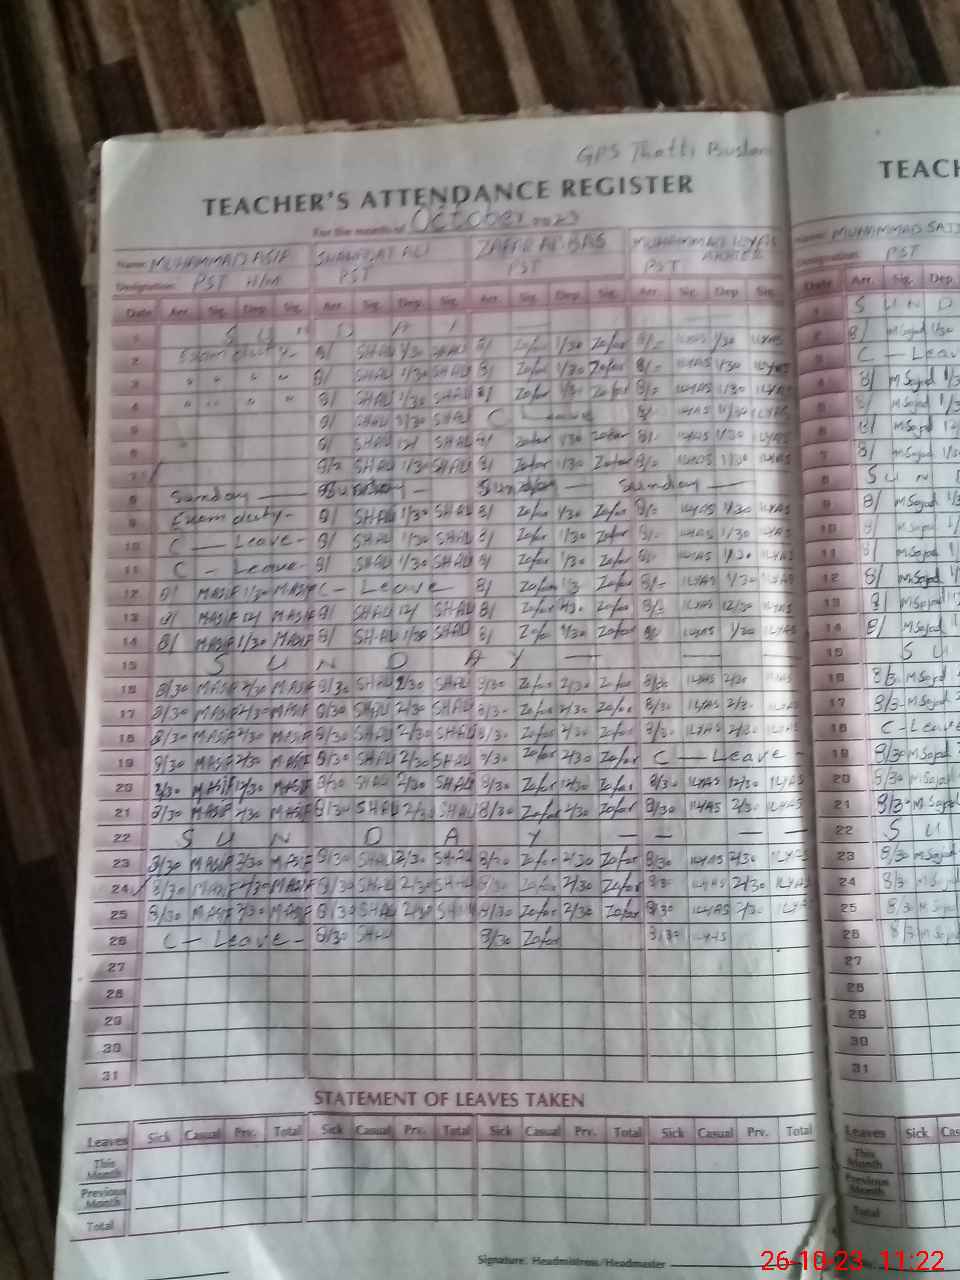 GPS Thatti
TEACHER'S ATTENDANCE REGISTER
TEACH
For the month of October 2023
Name: MUHAMMAD ASIF SHAUKAT ALI ZAFAR ABBAS MUHAMMAD ILYAS Name: MUHAMMAD SAJJ
Designation: PST H/M PST PST PST AHMED Designation: PST
Date Arr. Sig. Dep. Sig. Arr. Sig. Dep. Sig. Arr. Sig. Dep. Sig. Arr. Sig. Dep. Sig. Date Arr. Sig. Dep.
1 S U N D A Y 1 S U N D
2 Exam duty- 8/ SHAU 1/30 SHAU 8/ Zafar 1/30 Zafar 8/- ILYAS 1/30 ILYAS 2 8/ MSajad 1/30
3 " " " " 8/ SHAU 1/30 SHAU 8/ Zafar 1/30 Zafar 8/- ILYAS 1/30 ILYAS 3 C - Leav
4 " " " " 8/ SHAU 1/30 SHAU 8/ Zafar 1/30 Zafar 8/- ILYAS 1/30 ILYAS 4 8/ MSajad
5 8/ SHAU 1/30 SHAU C Leave 8/- ILYAS ILYAS 5 8/ MSajad
6 8/ SHAU 12/ SHAU 8/ Zafar 1/30 Zafar 8/- ILYAS 1/30 ILYAS 6 8/ MSajad 12/
7 SHAU 1/30 SHAU 8/ Zafar 1/30 Zafar 8/- ILYAS 1/30 ILYAS 7 8/ MSajad
8 Sunday — Sunday — Sunday — Sunday — 8 S U N
9 Exam duty- 8/ SHAU 1/30 SHAU 8/ Zafar 1/30 Zafar 8/- ILYAS 1/30 ILYAS 9 8/ MSajad
10 C — Leave- 8/ SHAU 1/30 SHAU 8/ Zafar 1/30 Zafar 8/- ILYAS 1/30 ILYAS 10 8/ MSajad
11 C - Leave- 8/ SHAU 1/30 SHAU 8/ Zafar 1/30 Zafar 8/- ILYAS 1/30 ILYAS 11 8/ MSajad
12 8/ MASIF 1/30 MASIF C - Leave 8/ Zafar Zafar 8/- ILYAS 1/30 ILYAS 12 8/ MSajad
13 8/ MASIF 12/ MASIF 8/ SHAU 12/ SHAU 8/ Zafar Zafar 8/- ILYAS 12/30 ILYAS 13 8/ MSajad
14 8/ MASIF 1/30 MASIF 8/ SHAU 1/30 SHAU 8/ Zafar 1/30 Zafar ILYAS 1/30 ILYAS 14 8/ MSajad
15 S U N D A Y — — — 15 S U
16 8/30 MASIF 2/30 MASIF 8/30 SHAU 2/30 SHAU 8/30 Zafar 2/30 Zafar 8/30 ILYAS 2/30 16 8/3- MSajad
17 8/30 MASIF 2/30 MASIF 8/30 SHAU 2/30 SHAU 8/30 Zafar 2/30 Zafar 8/30 ILYAS 2/30 ILYAS 17 8/3- MSajad
18 8/30 MASIF 2/30 MASIF 8/30 SHAU 2/30 SHAU 8/30 Zafar 2/30 Zafar 8/30 ILYAS 2/30 ILYAS 18 C - Leave
19 8/30 MASIF 2/30 MASIF 8/30 SHAU 2/30 SHAU Zafar 2/30 Zafar C — Leave - 19 8/30 MSajad
20 8/30 MASIF 12/30 MASIF 8/30 SHAU 2/30 SHAU 8/30 Zafar 12/30 Zafar 8/30 ILYAS 12/30 ILYAS 20 8/30 MSajad
21 8/30 MASIF MASIF 8/30 SHAU 2/30 SHAU 8/30 Zafar 2/30 Zafar 8/30 ILYAS 2/30 ILYAS 21 8/3- MSajad
22 S U N D A Y — — — — 22 S U
23 8/30 MASIF 2/30 MASIF 8/30 SHAU 2/30 SHAU 8/30 Zafar 2/30 Zafar 8/30 ILYAS 2/30 ILYAS 23 8/30 MSajad
24 8/30 MASIF 2/30 MASIF 8/30 SHAU 2/30 SHAU 8/30 Zafar 2/30 Zafar 8/30 ILYAS 2/30 ILYAS 24 8/3 MSajad
25 8/30 MASIF 2/30 MASIF 8/30 SHAU 2/30 SHAU 8/30 Zafar 2/30 Zafar 8/30 ILYAS 2/30 ILYAS 25 8/30 MSajad
26 C — Leave - 8/30 SHAU 8/30 Zafar 8/30 ILYAS 26 8/3- MSajad
27 27
28 28
29 29
30 30
31 31
STATEMENT OF LEAVES TAKEN
Leaves Sick Casual Prv. Total Sick Casual Prv. Total Sick Casual Prv. Total Sick Casual Prv. Total Leaves Sick Cas
This Month This Month
Previous Month Previous Month
Total Total
Signature: Headmistress/Headmaster
26-10-23 11:22